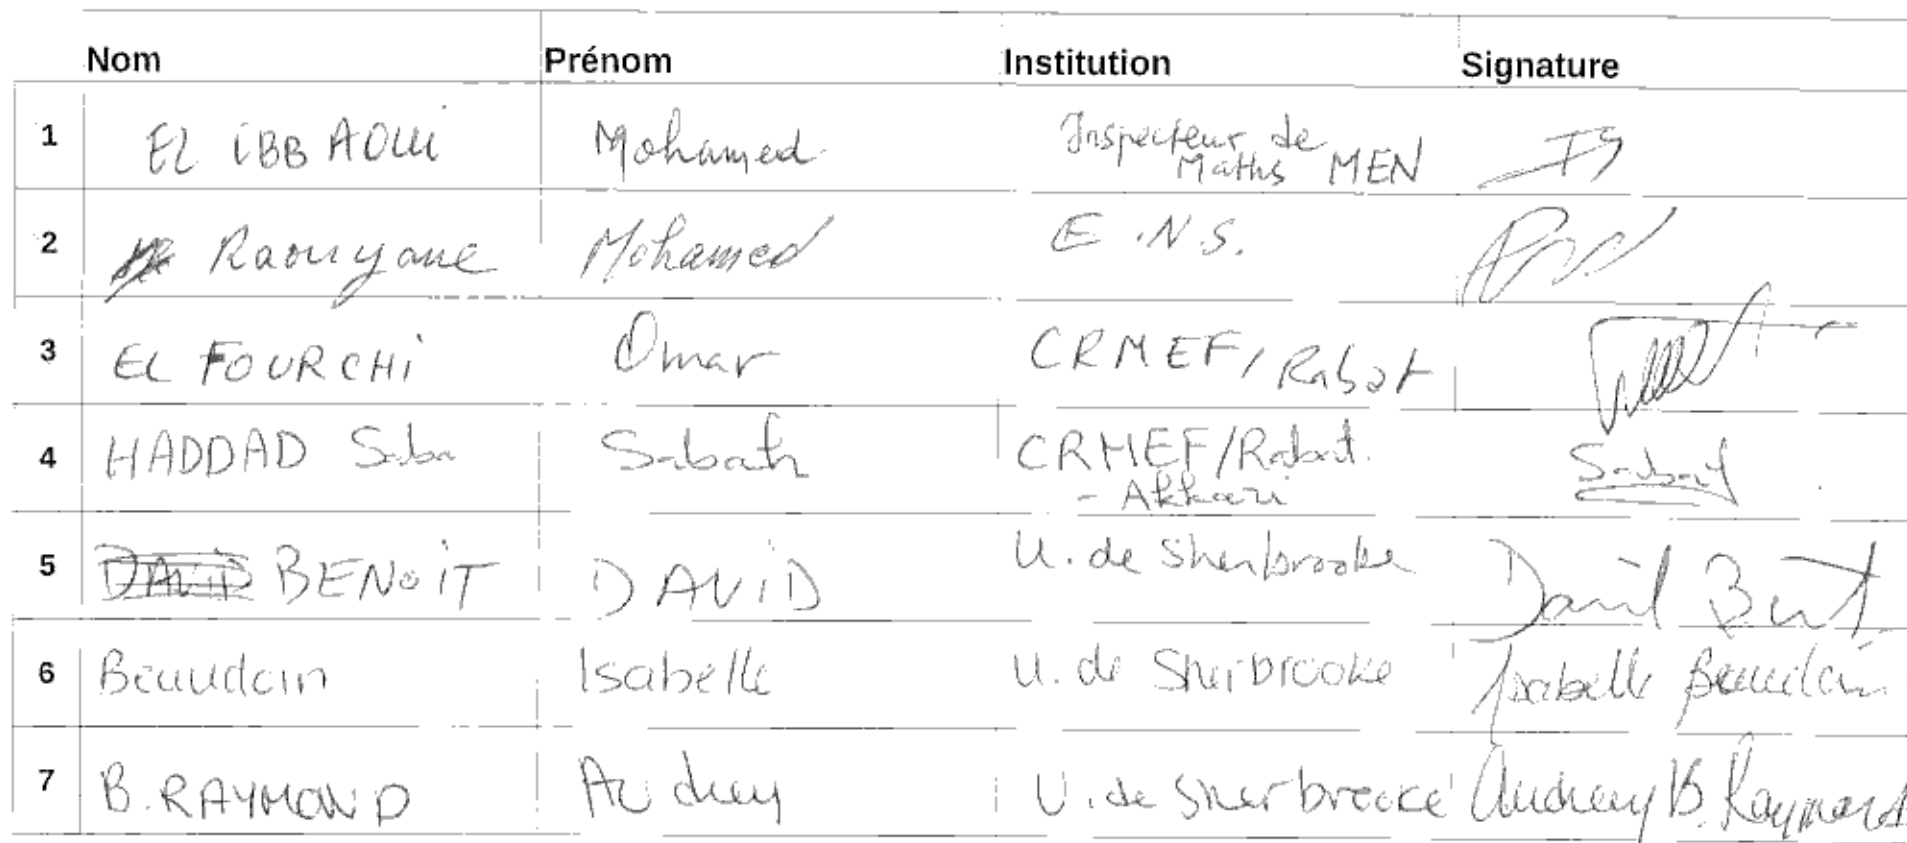 Nom Prénom Institution Signature
1 EL iBBAOUi Mohamed Inspecteur de Maths MEN
2 Raouyane Mohamed E.N.S.
3 EL FOURCHi Omar CRMEF/Rabat
4 HADDAD Saba Sabah CRMEF/Rabat - Akkari Sabah
5 DAViD BENOiT DAViD U. de Sherbrooke David Benoit
6 Beaudoin Isabelle U. de Sherbrooke Isabelle Beaudoin
7 B. RAYMOND Audrey U. de Sherbrooke Audrey B. Raymond